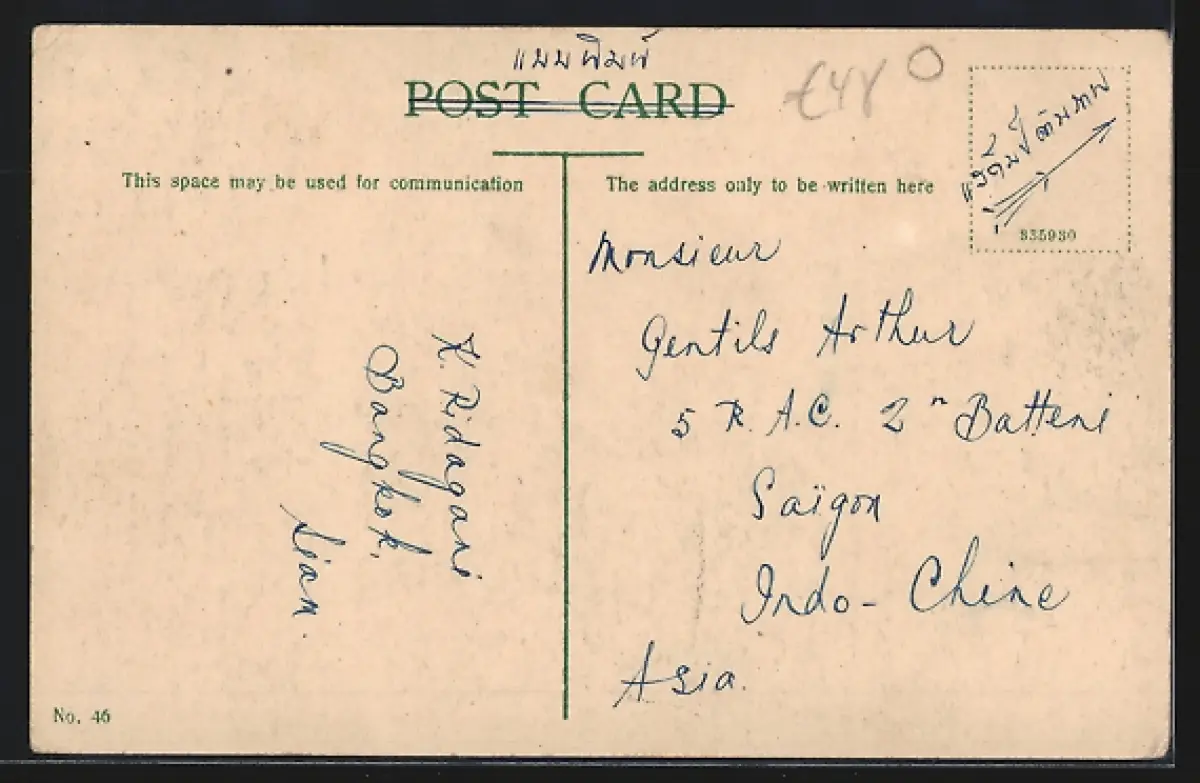 แบบพิมพ์
POST CARD
£48
This space may be used for communication
The address only to be written here
335930
Monsieur
Gentils Arthur
5 R. A.C. 2
Saïgon
Indo-Chine
Asia.
K. Ridagani
Bangkok.
Siam.
No. 46